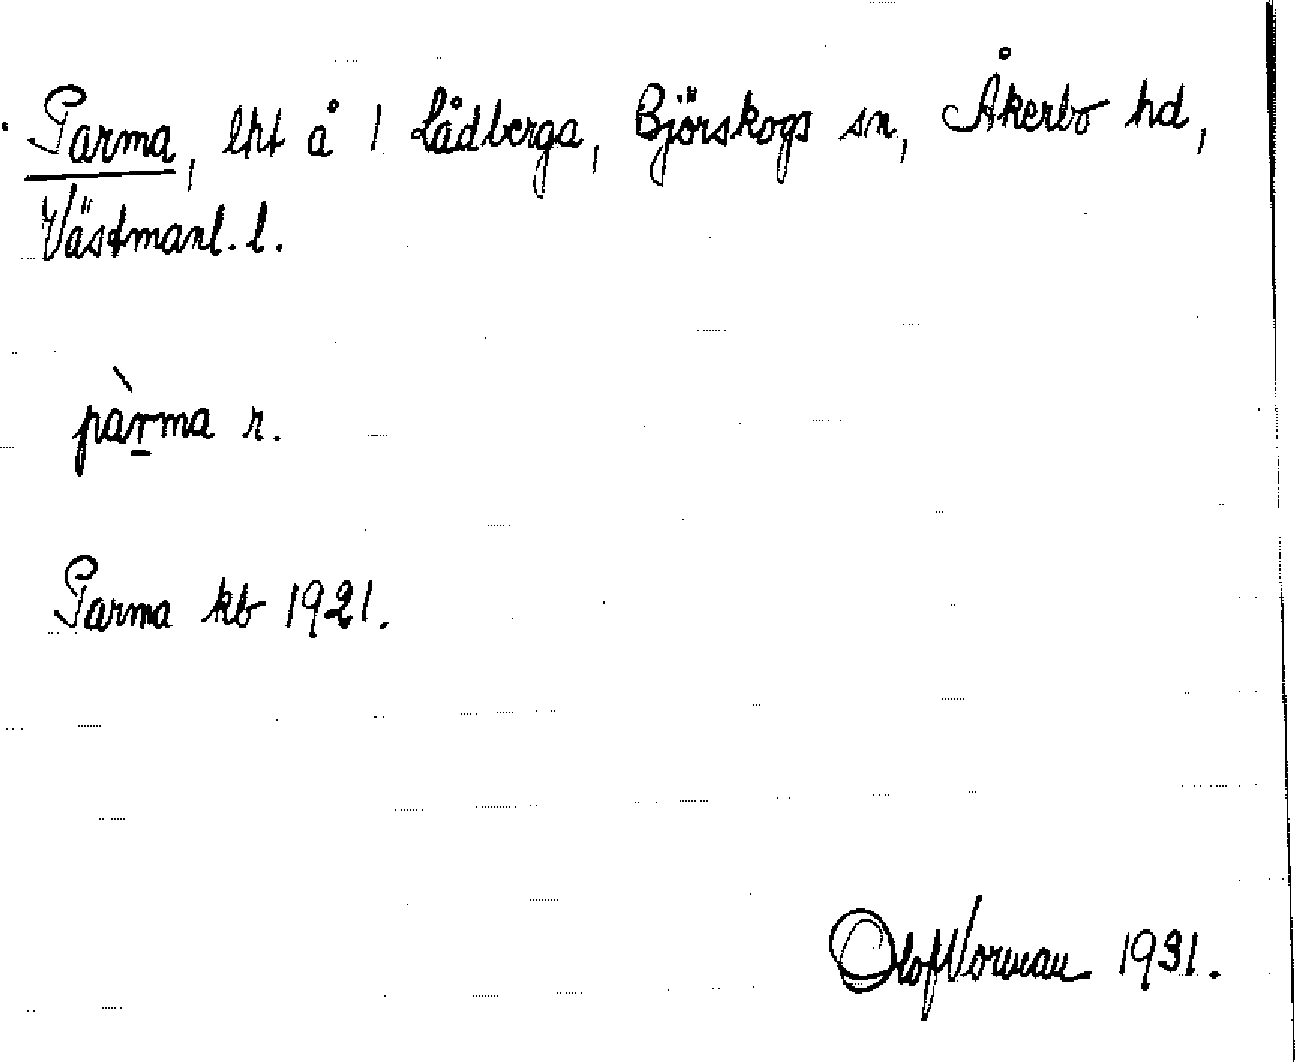 Parma, lht å 1 Lådberga, Björskogs sn, Åkerbo hd,
Västmanl. l.
pàrma r.
Parma kb 1921.
Olof Norman 1931.